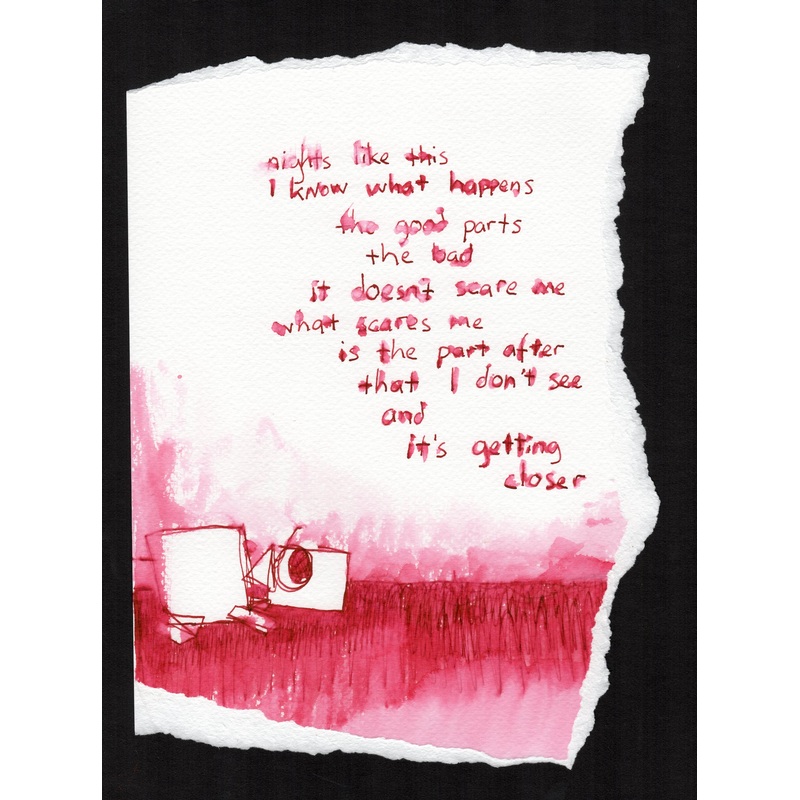 nights like this
I know what happens
the good parts
the bad
it doesn't scare me
what scares me
is the part after
that I don't see
and
it's getting
closer